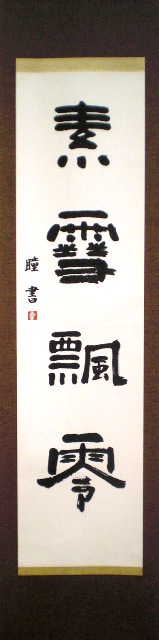 素雪飄零
瞳書